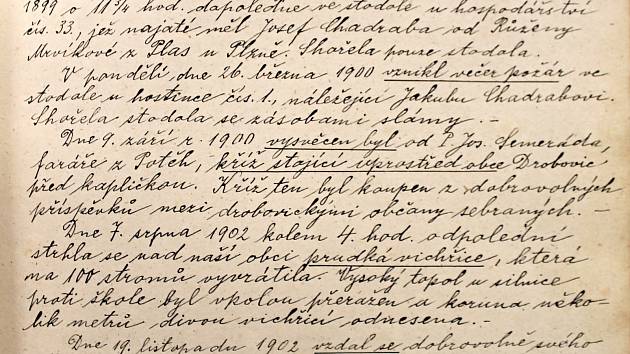 1899 o 11 3/4 hod. dopoledne ve stodole u hospodářství
čís. 33, jež najaté měl Josef Chadraba od Růženy
Mrvíkové z Plas u Plzně. Shořela pouze stodola.
V pondělí dne 26. března 1900 vznikl večer požár ve
stodole u hostince čís. 1., náležející Jakubu Chadrabovi.
Shořela stodola se zásobami slámy. –
Dne 9. září r. 1900 vysvěcen byl od P. Jos. Semeráda,
faráře z Potěh, kříž stojící uprostřed obce Drobovic
před kapličkou. Kříž ten byl koupen z dobrovolných
příspěvků mezi drobovickými občany sebraných. –
Dne 7. srpna 1902 kolem 4. hod. odpolední
strhla se nad naší obcí prudká vichřice, která
na 100 stromů vyvrátila. Vysoký topol u silnice
proti škole byl vpolou přeražen a koruna něko-
lik metrů divou vichřicí odnesena. –
Dne 19. listopadu 1902 vzdal se dobrovolně svého